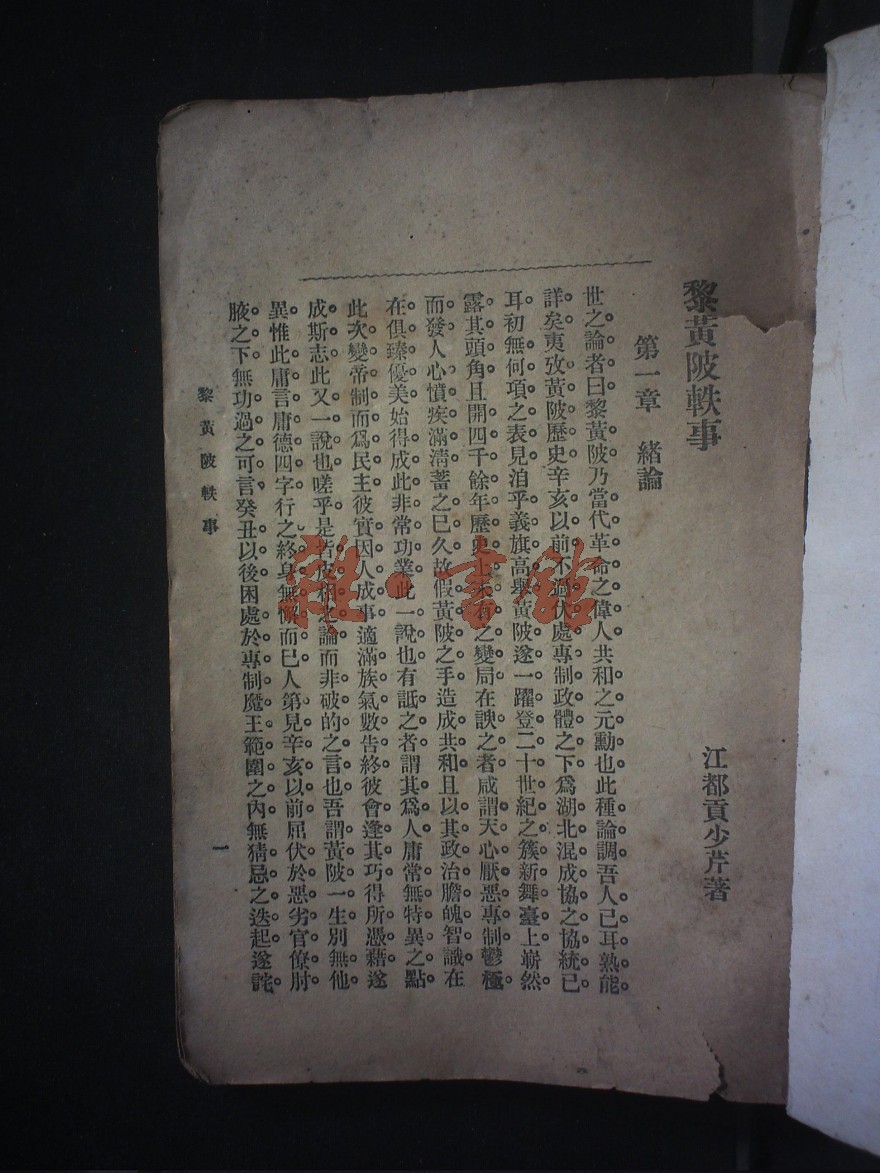 黎黃陂軼事
江都貢少芹著
第一章 緒論
世之論者曰黎黃陂乃當代革命之偉人共和之元勳也此種論調吾人已耳熟能
詳矣夷攷黃陂歷史辛亥以前不過伏處專制政體之下爲湖北混成協之協統已
耳初無何項之表見洎乎義旗高舉黃陂遂一躍登二十世紀之簇新舞臺上嶄然
露其頭角且開四千餘年歷史上未有之變局在諛之者咸謂天心厭惡專制鬱極
而發人心憤疾滿淸蓄之已久故假黃陂之手造成共和且以其政治膽魄智識在
在俱臻優美始得成此非常功業此一說也有詆之者謂其爲人庸常無特異之點
此次變帝制而爲民主彼實因人成事適滿族氣數告終彼會逢其巧得所憑藉遂
成斯志此又一說也嗟乎是皆皮相之論而非破的之言也吾謂黃陂一生別無他
異惟此庸言庸德四字行之終身無懈而已人第見辛亥以前屈伏於惡劣官僚肘
腋之下無功過之可言癸丑以後困處於專制魔王範圍之內無猜忌之迭起遂詫
黎黃陂軼事
一
雜·書館